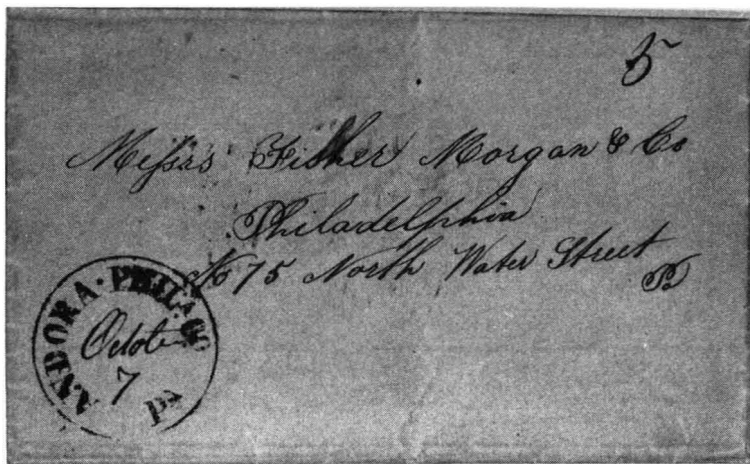 5
Messrs Fisher Morgan & Co
Philadelphia
No 75 North Water Street
ANDORA · PHIL. CO
Octobe
7
Pa